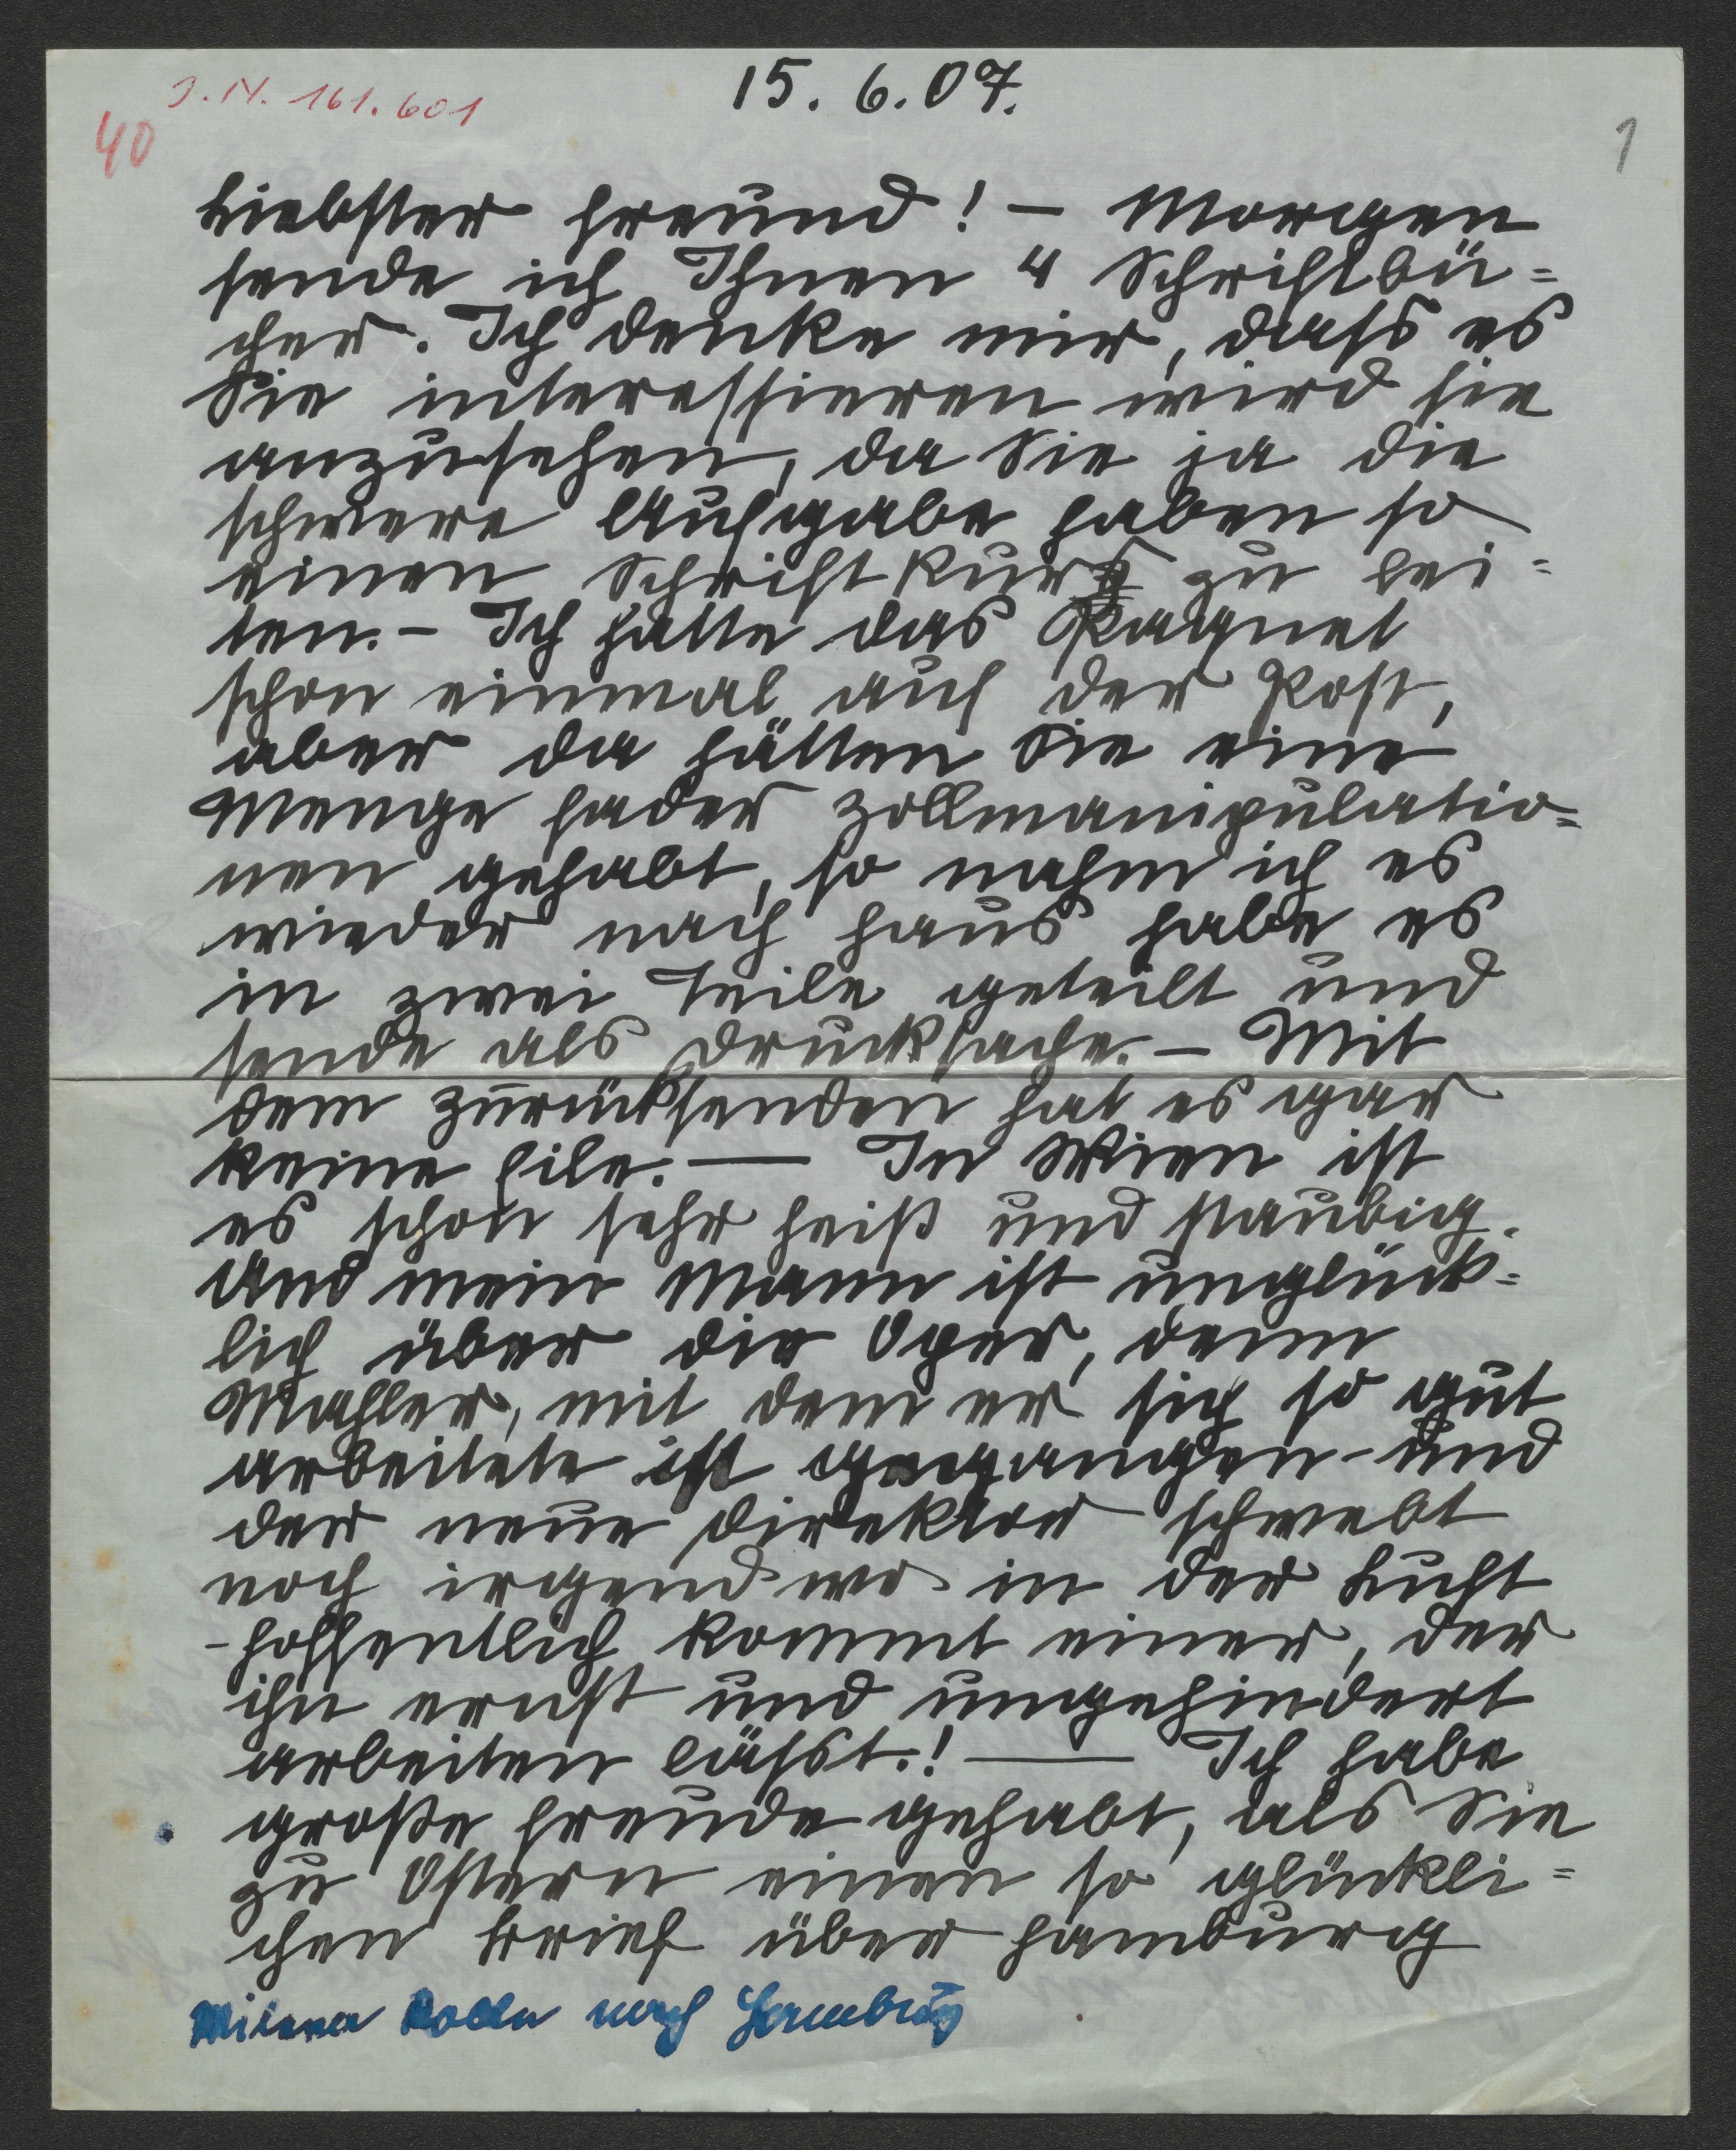 J.N. 161.601
15.6.07.
40
1
Liebster Freund! – Morgen
sende ich Ihnen 4 Schriftbü=
cher. Ich denke mir, dass es
Sie interessieren wird sie
anzusehen, da Sie ja die
schwere Aufgabe haben so
einen Schriftkurs zu lei=
ten. – Ich hatte das Paquet
schon einmal auf der Post,
aber da hätten Sie eine
Menge fader Zollmanipulatio=
nen gehabt, so nahm ich es
wieder nach Haus habe es
in zwei Teile geteilt und
sende als Drucksache. – Mit
dem Zurücksenden hat es gar
keine Eile. — In Wien ist
es schon sehr heiß und staubig.
Und mein Mann ist unglück=
lich über die Oper, denn
Mahler, mit dem er sich so gut
arbeitete ist gegangen – und
der neue Direktor schwebt
noch irgendwo in der Luft
– hoffentlich kommt einer, der
ihn ernst und ungehindert
arbeiten lässt.! — Ich habe
große Freude gehabt, als Sie
zu Ostern einen so glückli=
chen Brief über Hamburg
Milena Roller nach Hamburg